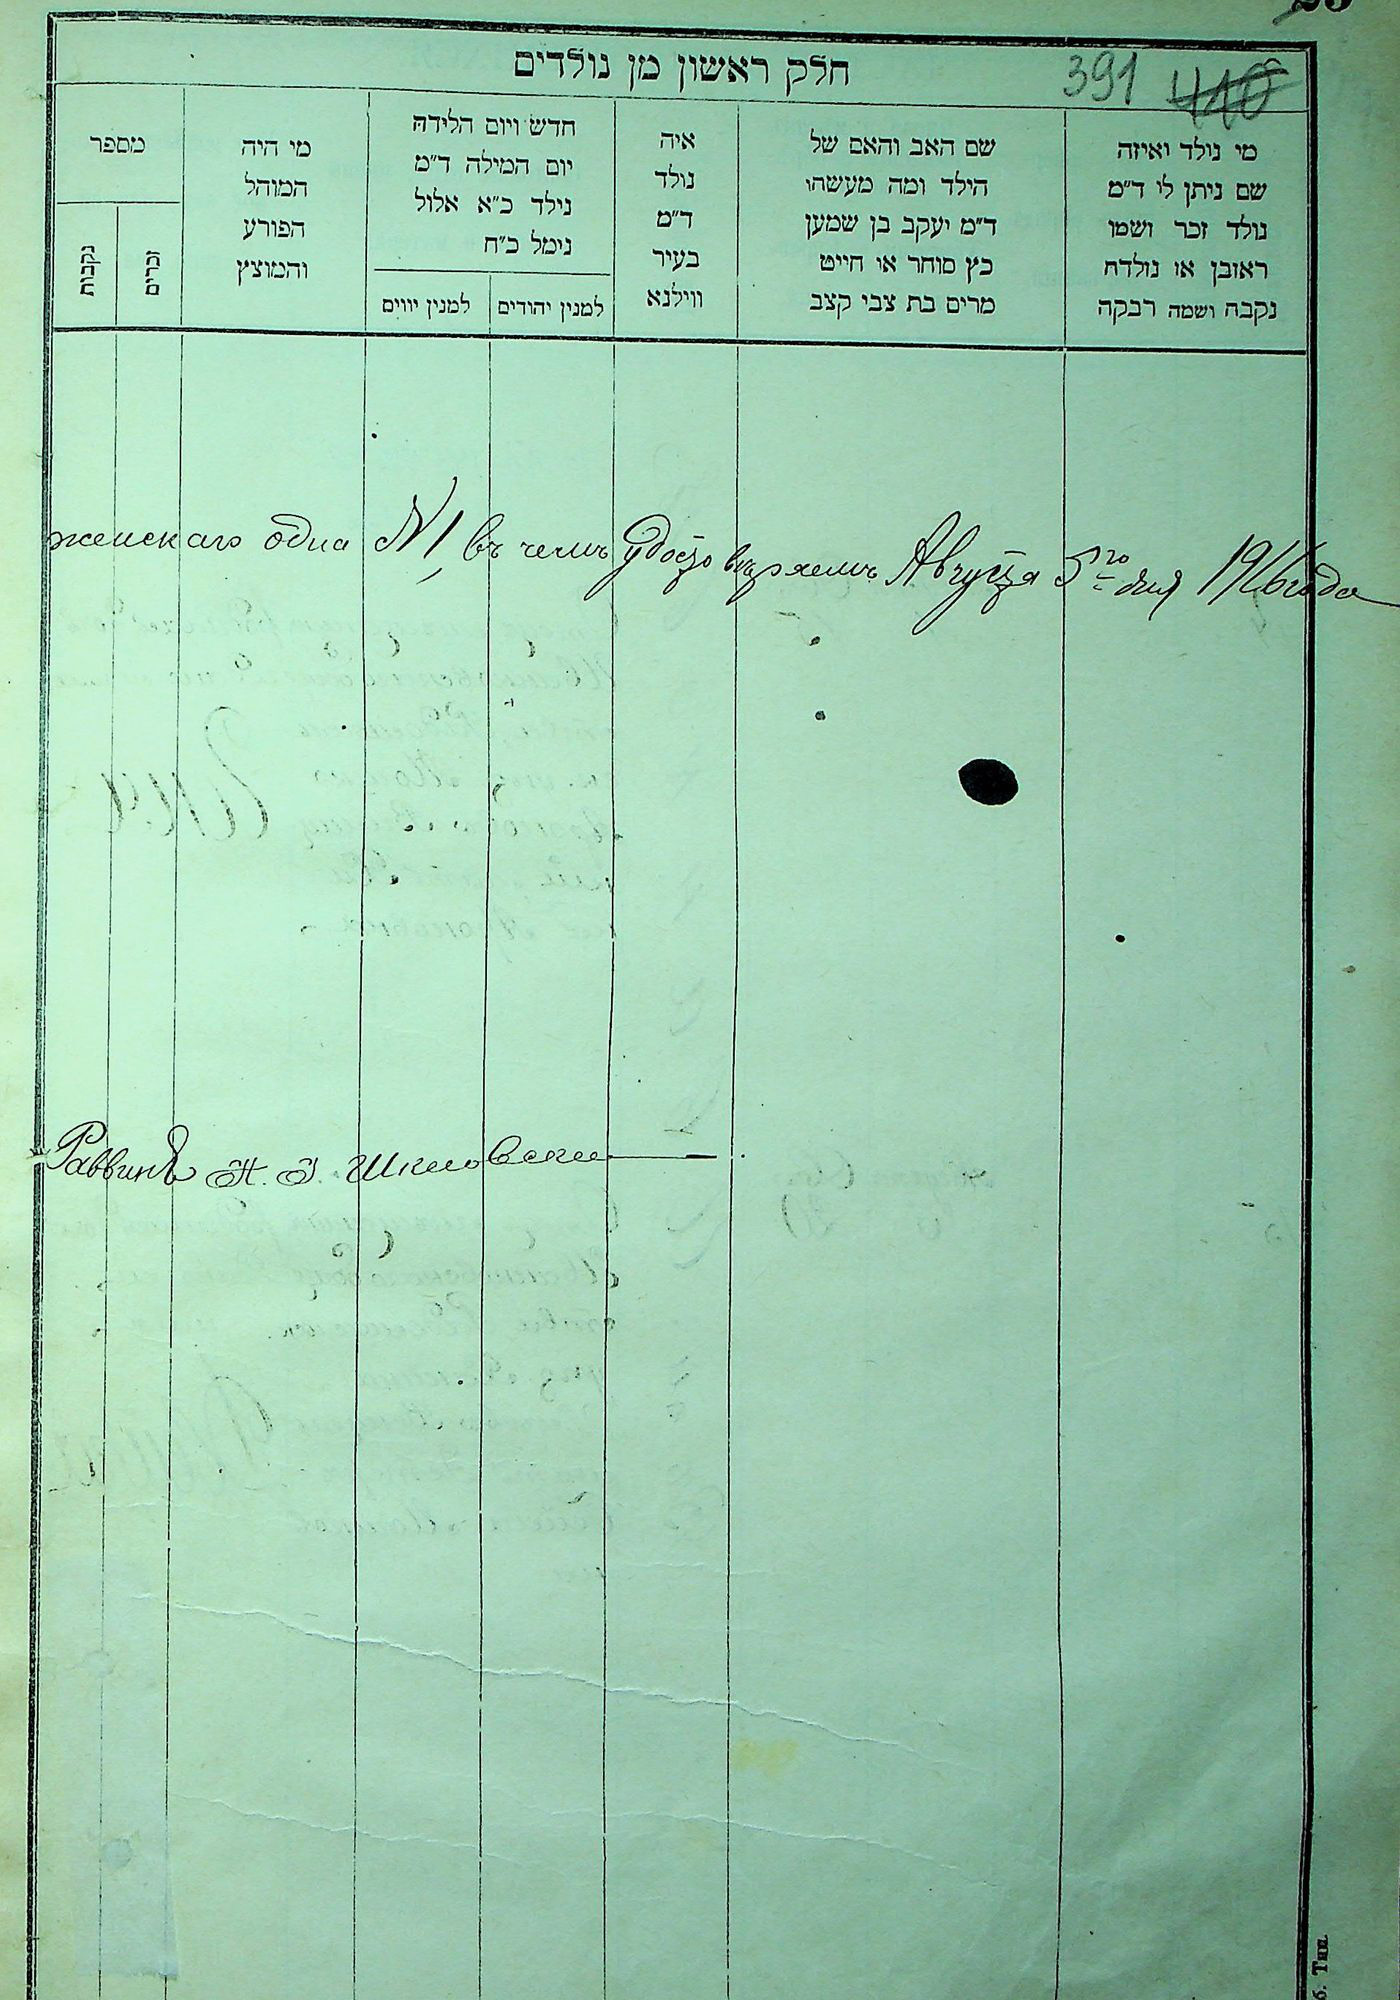 חלק ראשון מן נולדים
391 410
מי נולד ואיזה
שם ניתן לי ד"מ
נולד זכר ושמו
ראובן או נולדת
נקבה ושמה רבקה
שם האב והאם של
הילד ומה מעשהו
ד"מ יעקב בן שמען
כץ סוחר או חייט
מרים בת צבי קצב
איה
נולד
ד"מ
בעיר
ווילנא
חדש ויום הלידה
יום המילה ד"מ
נילד כ"א אלול
נימל כ"ח
למנין יהודים
למנין יווים
מי היה
המוהל
הפורע
והמוצץ
מספר
זכרים
נקבות
женскаго одна N 1 въ чемъ удостовѣряемъ Августа 5го дня 1916 года
Раввинъ
б. Тип.